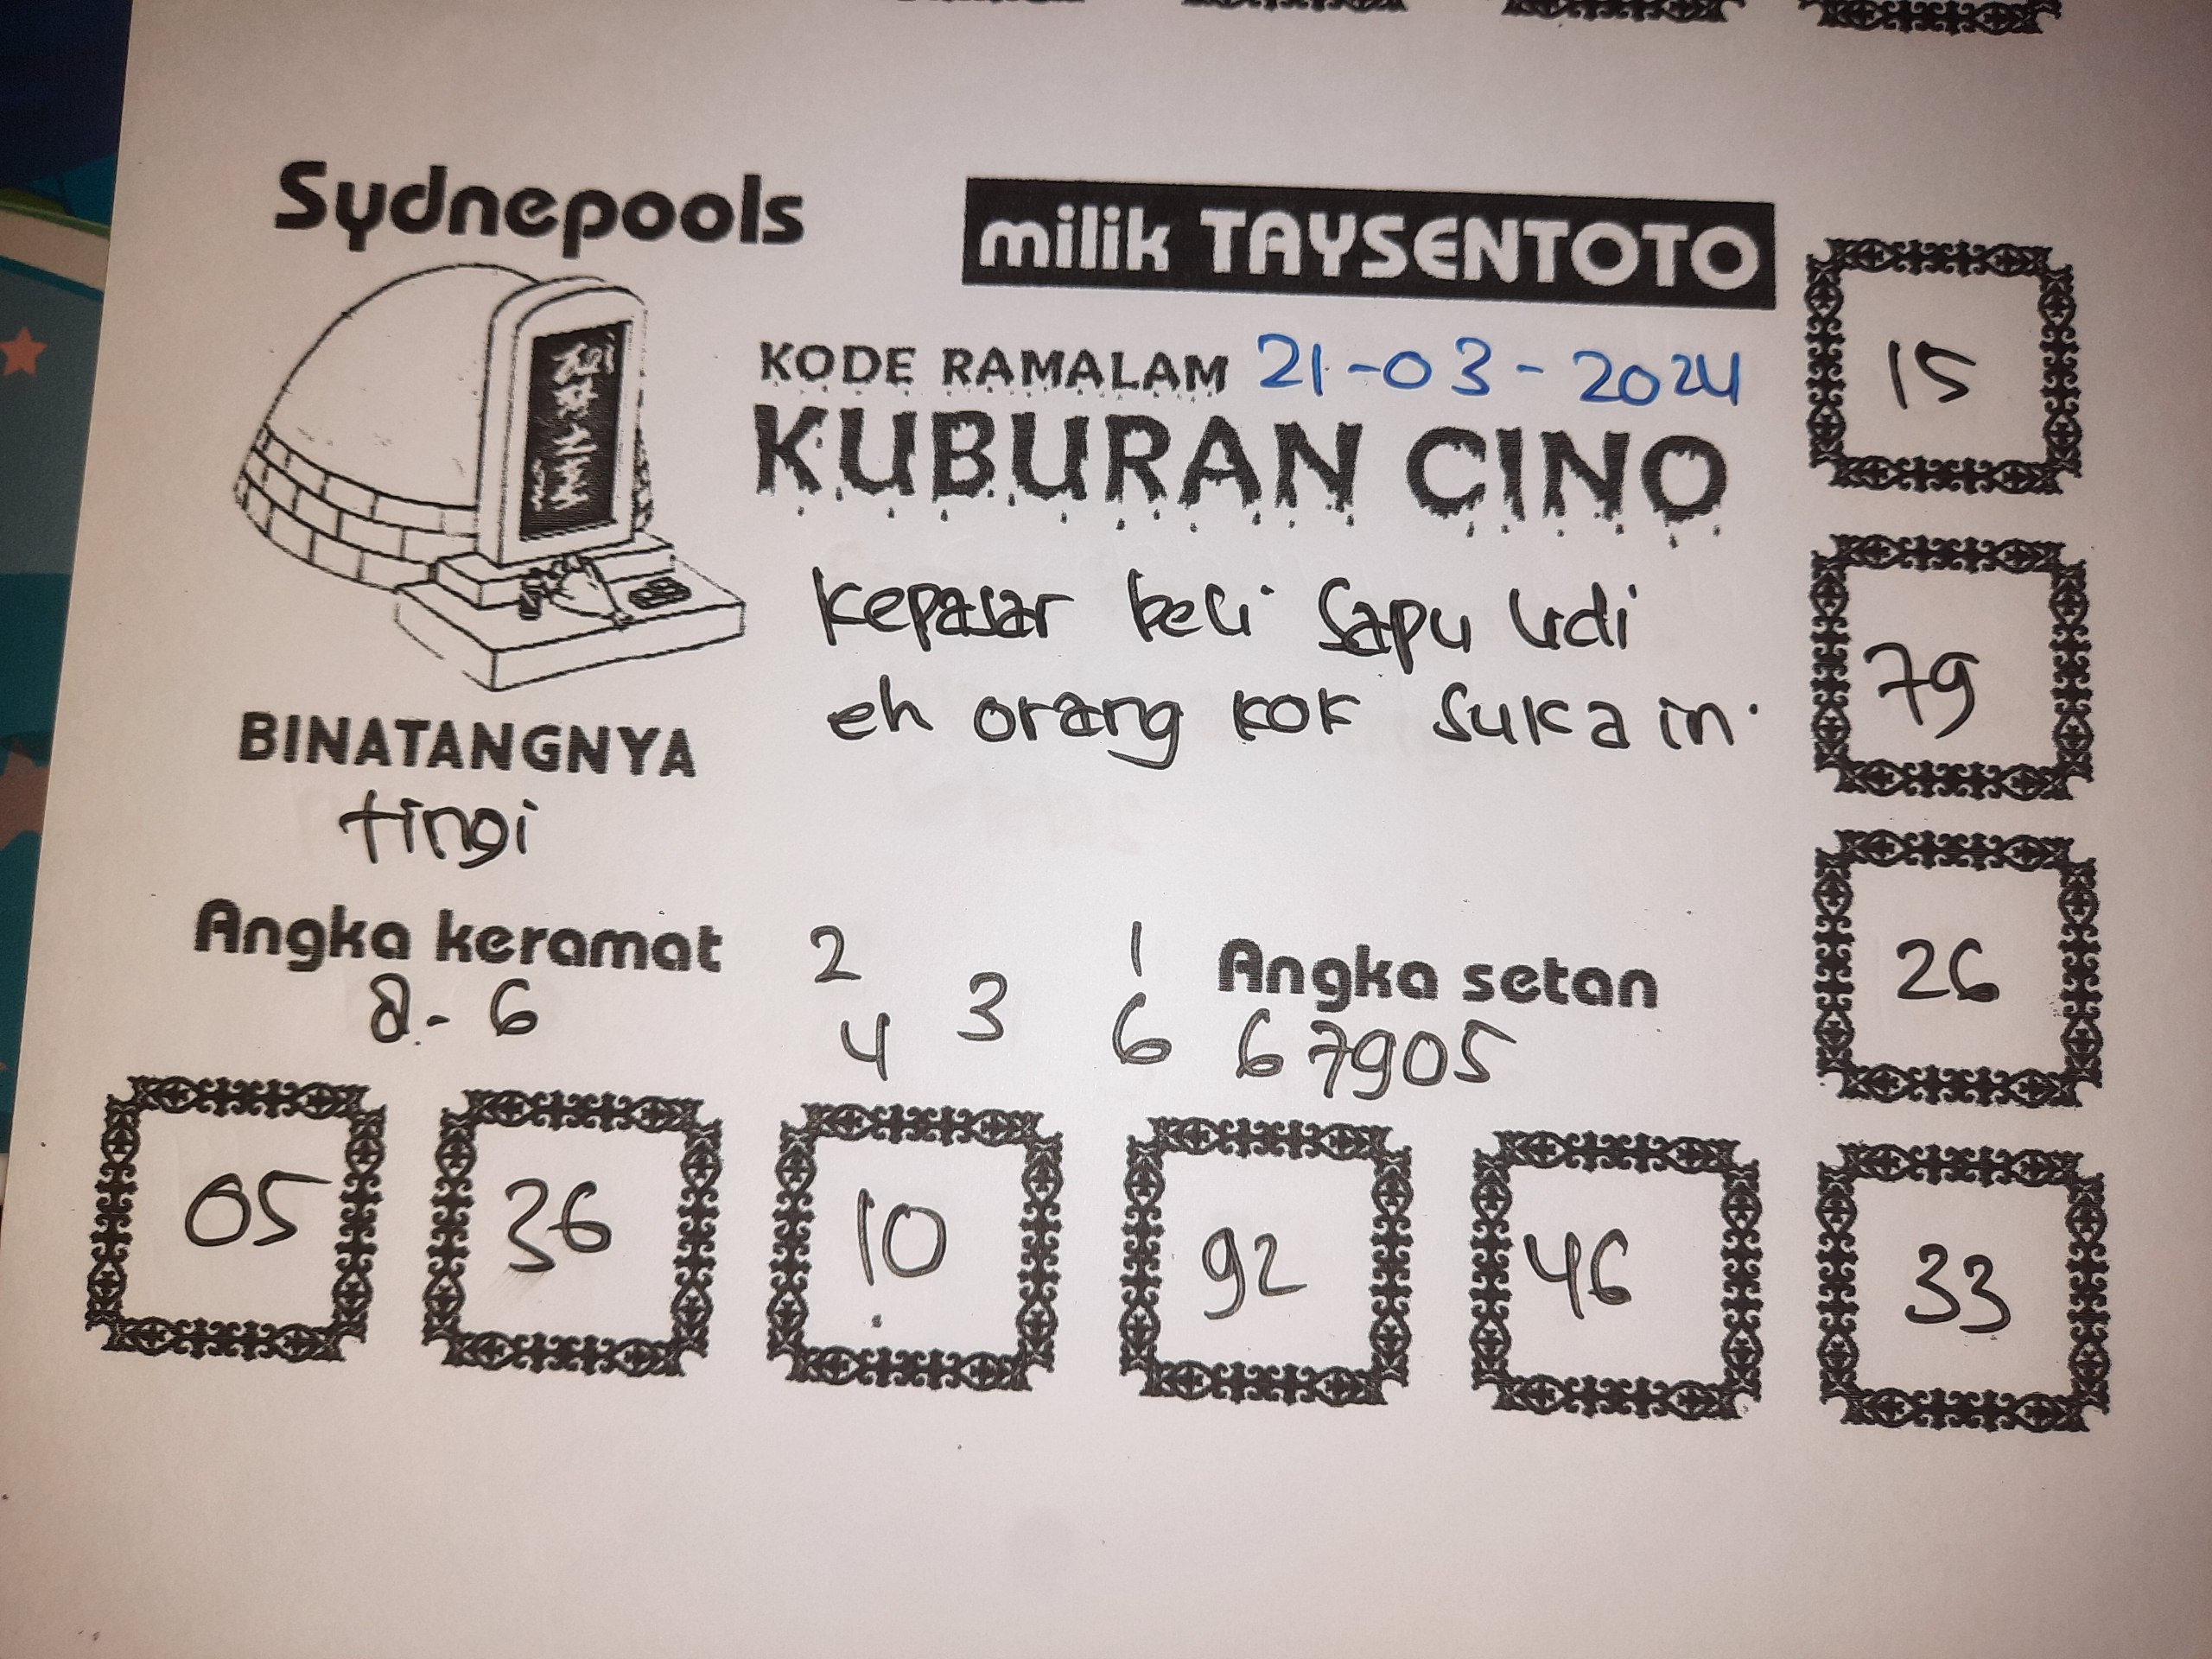 Sydnepools
milik TAYSENTOTO
KODE RAMALAM 21-03-2024
KUBURAN CINO
Kepasar beli Sapu Lidi
eh orang kok Suka in
BINATANGNYA
tingi
Angka keramat
8-6
2 1
3
4 6
Angka setan
67905
15
79
26
05 36 10 92 46 33